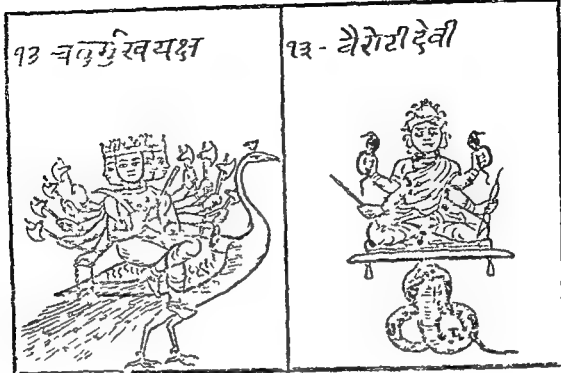 १३ चतुर्मुखयक्ष
१३ - वैरोटीदेवी